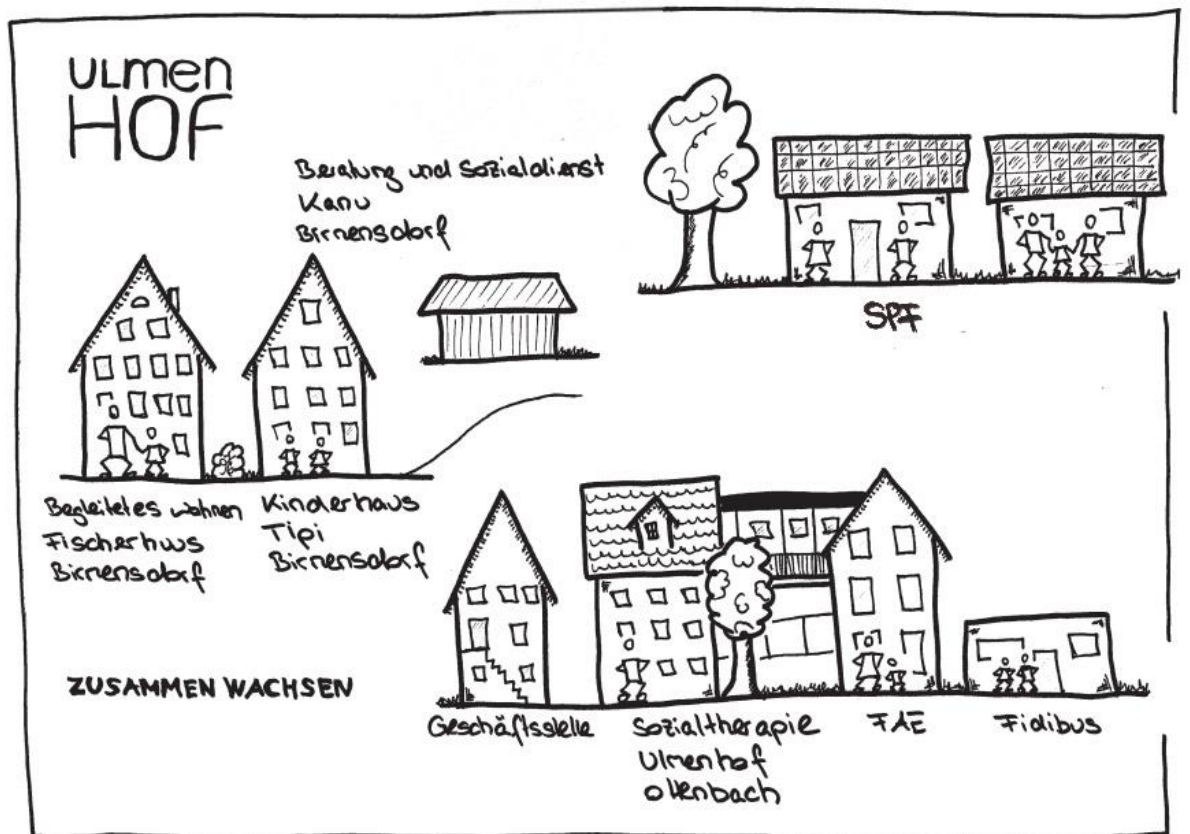 ULmen
HOF
Beratung und Sozialdienst
Kanu
Birmensdorf
SPF
Begleitetes wohnen
Fischerhuus
Birmensdorf
Kinderhaus
Tipi
Birmensdorf
ZUSAMMEN WACHSEN
Geschäftsstelle
Sozialtherapie
Ulmenhof
Ottenbach
FAE
Fidibus